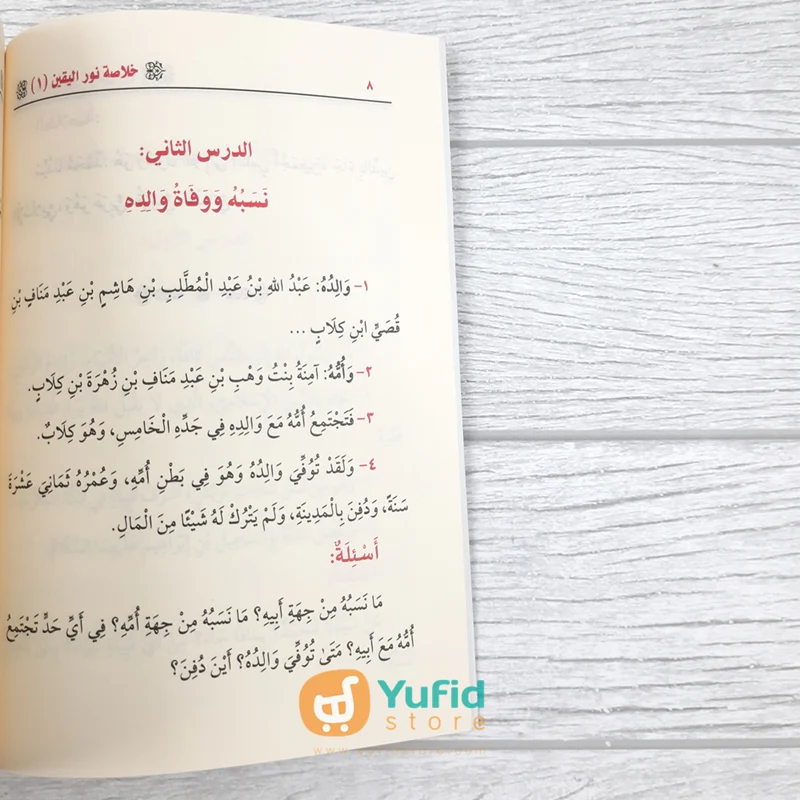 خلاصة نور اليقين (١)
٨
الدرس الثاني:
نَسَبُهُ وَوَفَاةُ وَالِدِهِ
١- وَالِدُهُ: عَبْدُ اللهِ بْنُ عَبْدِ الْمُطَّلِبِ بْنِ هَاشِمٍ بْنِ عَبْدِ مَنَافٍ بْنِ
قُصَيٍّ ابْنِ كِلَابٍ ...
٢- وَأُمُّهُ: آمِنَةُ بِنْتُ وَهْبِ بْنِ عَبْدِ مَنَافِ بْنِ زُهْرَةَ بْنِ كِلَابٍ.
٣- فَتَجْتَمِعُ أُمُّهُ مَعَ وَالِدِهِ فِي جَدِّهِ الْخَامِسِ، وَهُوَ كِلَابٌ.
٤- وَلَقَدْ تُوُفِّيَ وَالِدُهُ وَهُوَ فِي بَطْنِ أُمِّهِ، وَعُمْرُهُ ثَمَانِيَ عَشْرَةَ
سَنَةً، وَدُفِنَ بِالْمَدِينَةِ، وَلَمْ يَتْرُكْ لَهُ شَيْئًا مِنَ الْمَالِ.
أَسْئِلَةٌ:
مَا نَسَبُهُ مِنْ جِهَةِ أَبِيهِ؟ مَا نَسَبُهُ مِنْ جِهَةِ أُمِّهِ؟ فِي أَيِّ حَدٍّ تَجْتَمِعُ
أُمُّهُ مَعَ أَبِيهِ؟ مَتَى تُوُفِّيَ وَالِدُهُ؟ أَيْنَ دُفِنَ؟
Yufid
store